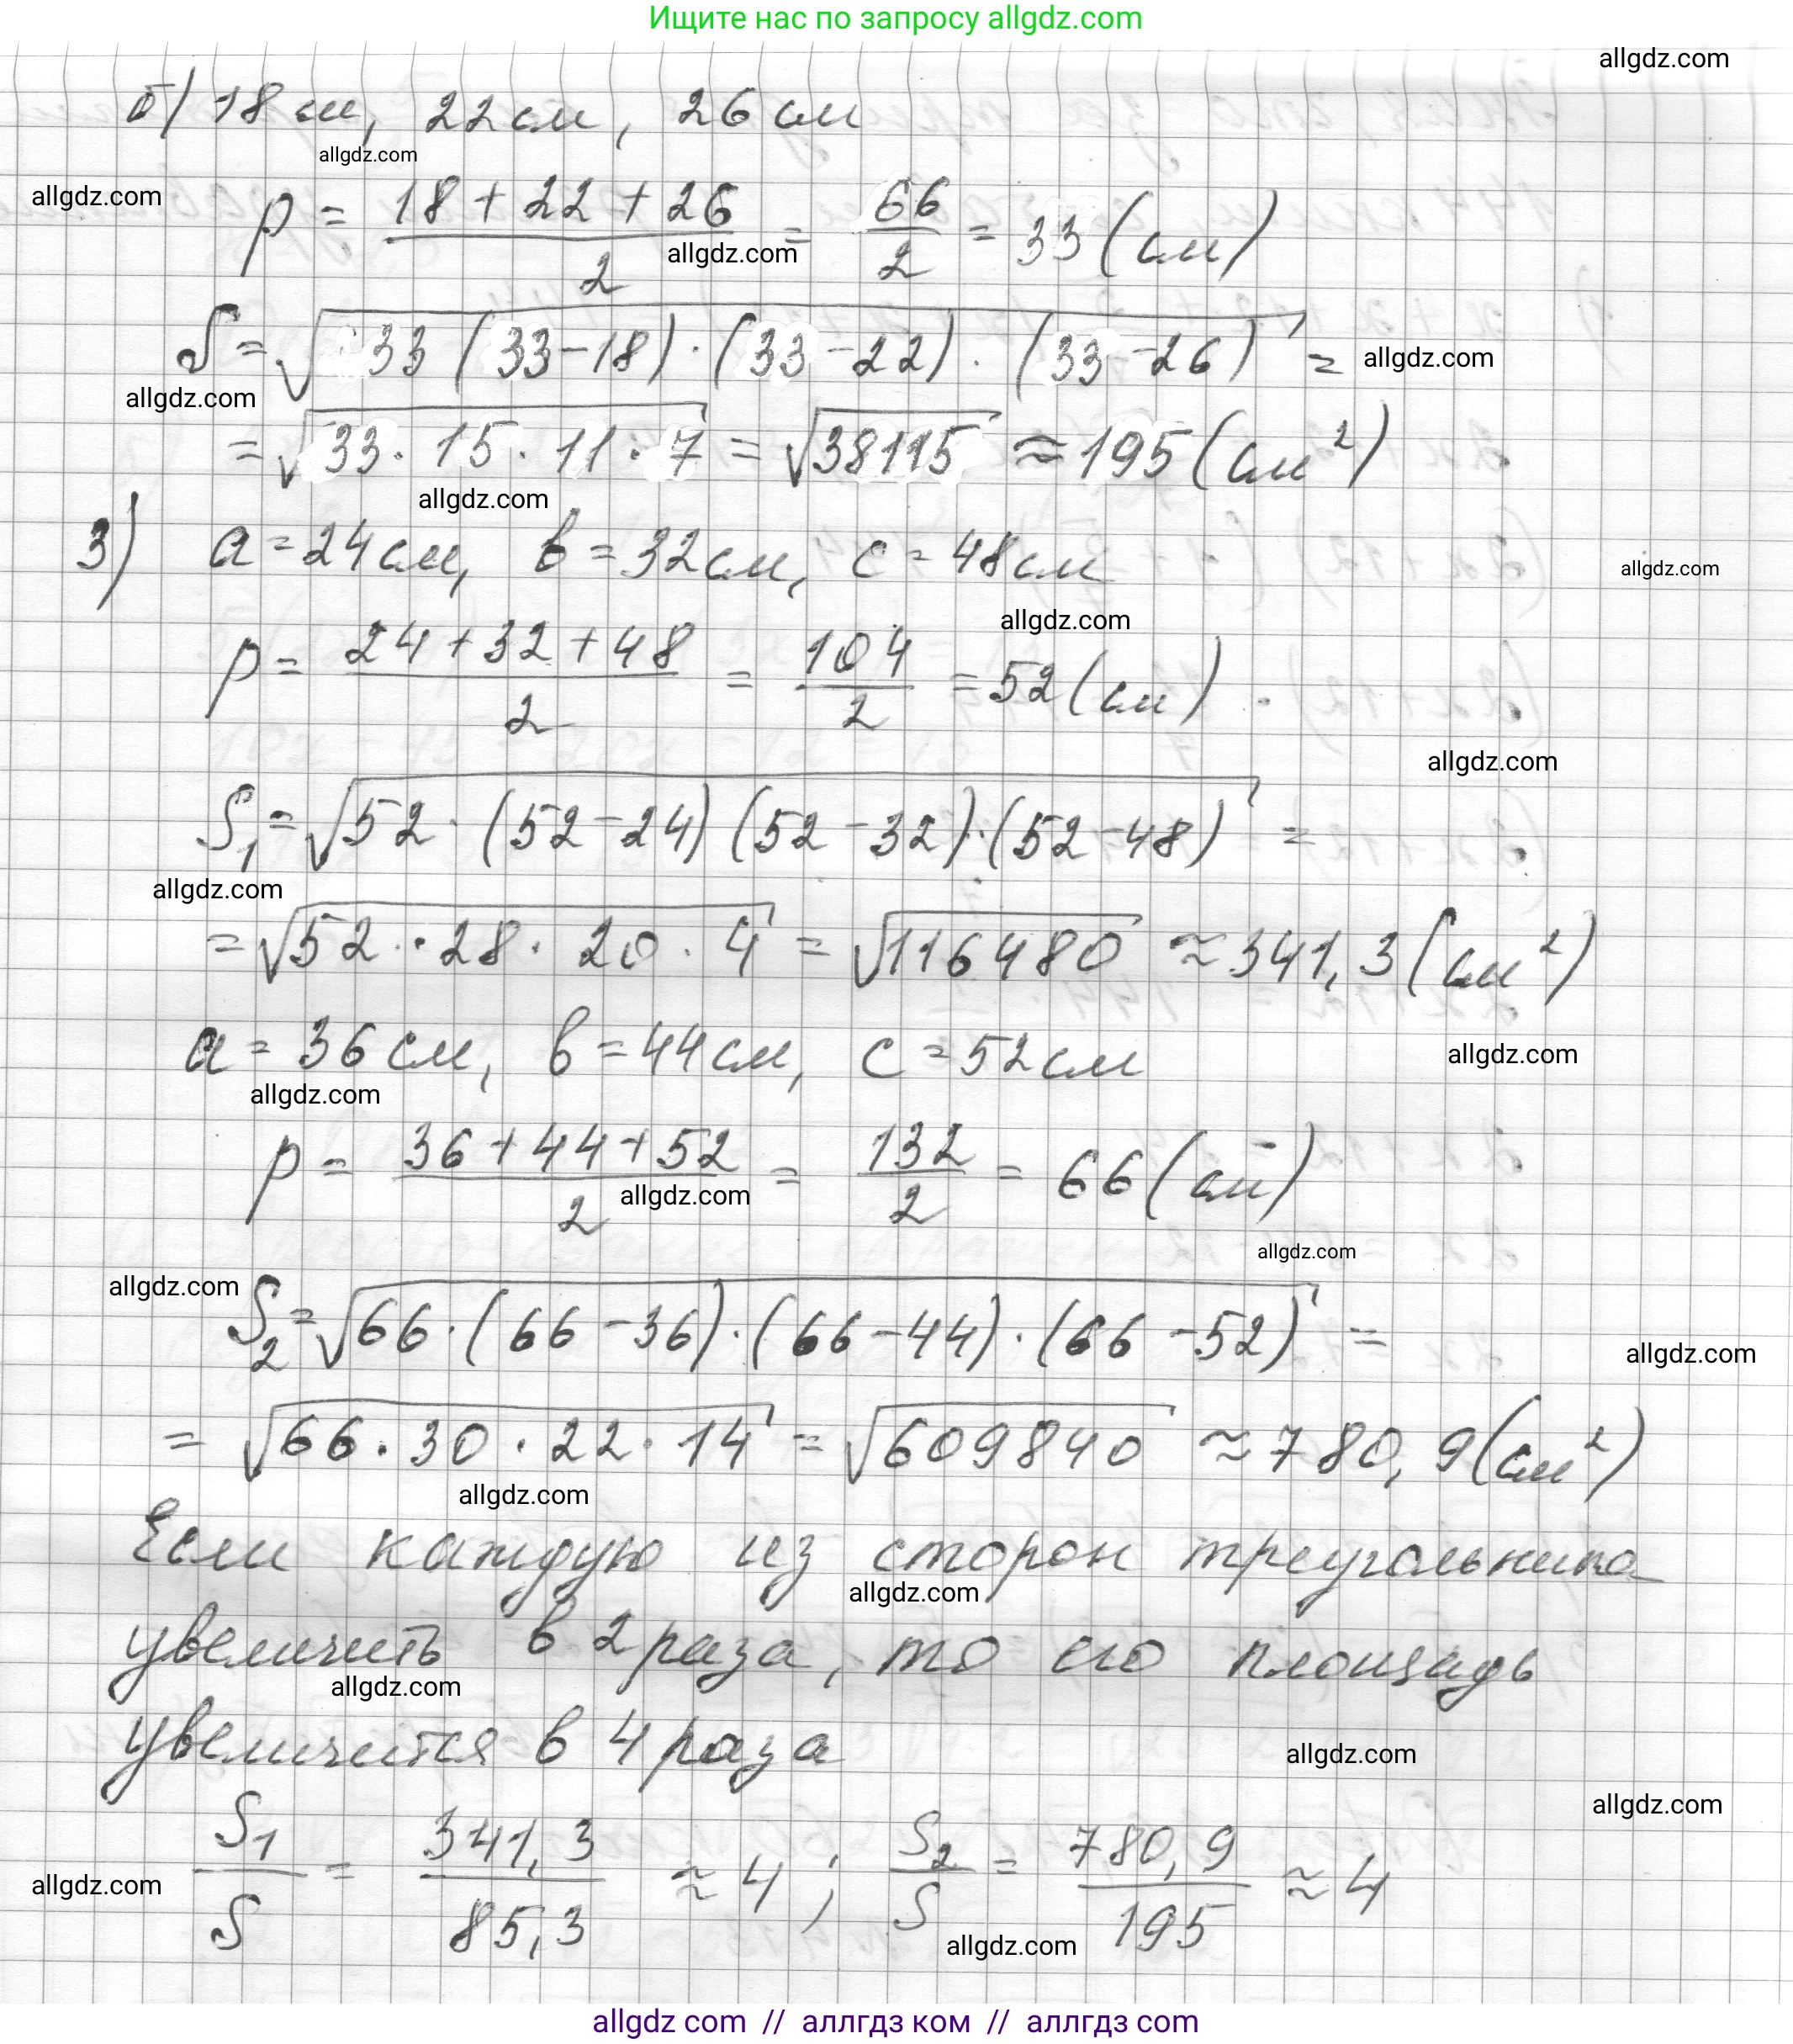 Ищите нас по запросу allgdz.com
allgdz.com
б) 18 см, 22 см, 26 см
allgdz.com
allgdz.com
p = (18 + 22 + 26)/2 = 66/2 = 33 (см)
allgdz.com
S = √(33 (33 - 18) · (33 - 22) · (33 - 26)) =
allgdz.com
allgdz.com
= √(33 · 15 · 11 · 7) = √38115 ≈ 195 (см²)
allgdz.com
3) a = 24 см, в = 32 см, c = 48 см
allgdz.com
allgdz.com
p = (24 + 32 + 48)/2 = 104/2 = 52 (см)
allgdz.com
S₁ = √(52 · (52 - 24) (52 - 32) · (52 - 48)) =
allgdz.com
= √(52 · 28 · 20 · 4) = √116480 ≈ 341,3 (см²)
a = 36 см, в = 44 см, c = 52 см
allgdz.com
allgdz.com
p = (36 + 44 + 52)/2 = 132/2 = 66 (см)
allgdz.com
allgdz.com
allgdz.com
S₂ = √(66 · (66 - 36) · (66 - 44) · (66 - 52)) =
allgdz.com
= √(66 · 30 · 22 · 14) = √609840 ≈ 780,9 (см²)
allgdz.com
Если каждую из сторон треугольника
allgdz.com
увеличить в 2 раза, то его площадь
allgdz.com
увеличится в 4 раза
allgdz.com
allgdz.com
S₁/S = 341,3/85,3 ≈ 4; S₂/S = 780,9/195 ≈ 4
allgdz.com
allgdz.com
allgdz com // аллгдз ком // аллгдз com